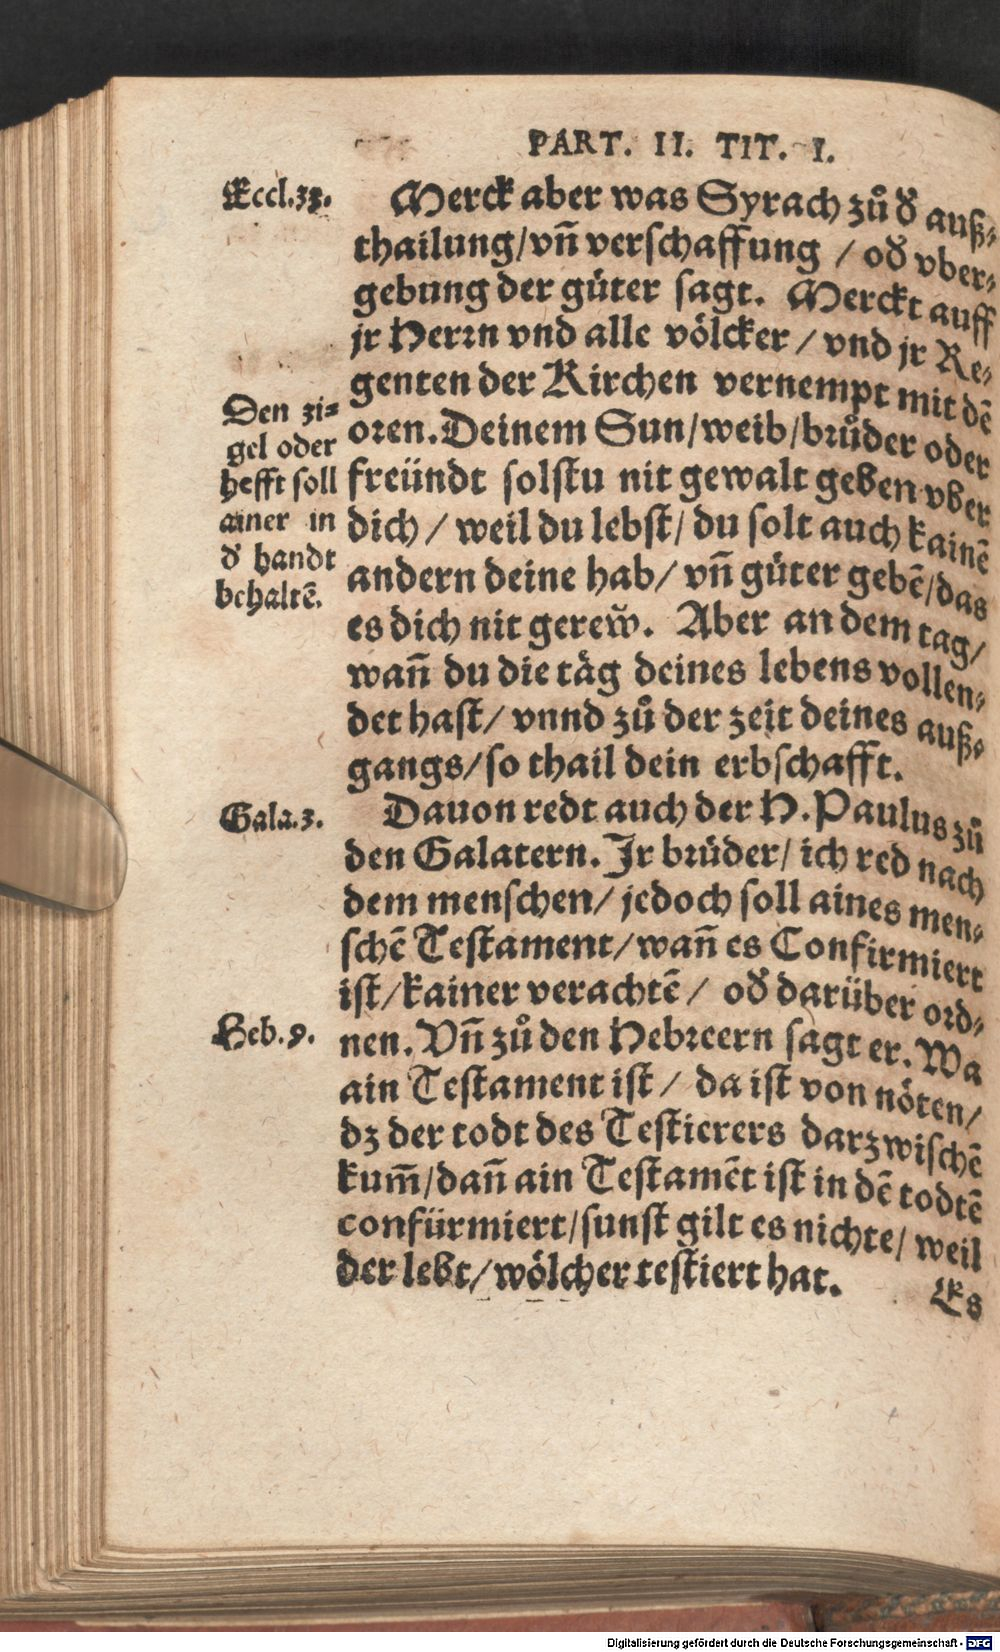 PART. II. TIT. I.
Eccl.33.
Merck aber was Syrach zuͦ d' auß⸗
thailung/vn̄ verschaffung / od' vber⸗
gebung der guͤter sagt. Merckt auff
jr Herꝛn vnd alle voͤlcker / vnd jr Re⸗
genten der Kirchen vernempt mit dē
oꝛen. Deinem Sun/weib/bꝛuͦder oder
freündt solstu nit gewalt geben vber
dich / weil du lebst/ du solt auch kainē
andern deine hab/ vn̄ guͤter gebē/das
es dich nit gerew̄. Aber an dem tag/
wan̄ du die taͤg deines lebens vollen⸗
det hast/ vnnd zuͦ der zeit deines auß⸗
gangs/so thail dein erbschafft.
Den zi⸗
gel oder
hefft soll
ainer in
d' handt
behaltē.
Gala.3.
Dauon redt auch der H. Paulus zuͦ
den Galatern. Jr bꝛuͤder/ ich red nach
dem menschen/ jedoch soll aines men⸗
schē Testament/wan̄ es Confirmiert
ist/kainer verachtē / od' darüber oꝛd⸗
nen. Vn̄ zuͦ den Hebꝛeern sagt er. Wa
ain Testament ist / da ist von noͤten/
dz der todt des Testierers darzwischē
kum̄/dan̄ ain Testamēt ist in dē todtē
confürmiert/sunst gilt es nichte/ weil
der lebt/woͤlcher testiert hat.
Heb.9.
Es
Digitalisierung gefördert durch die Deutsche Forschungsgemeinschaft - DFG